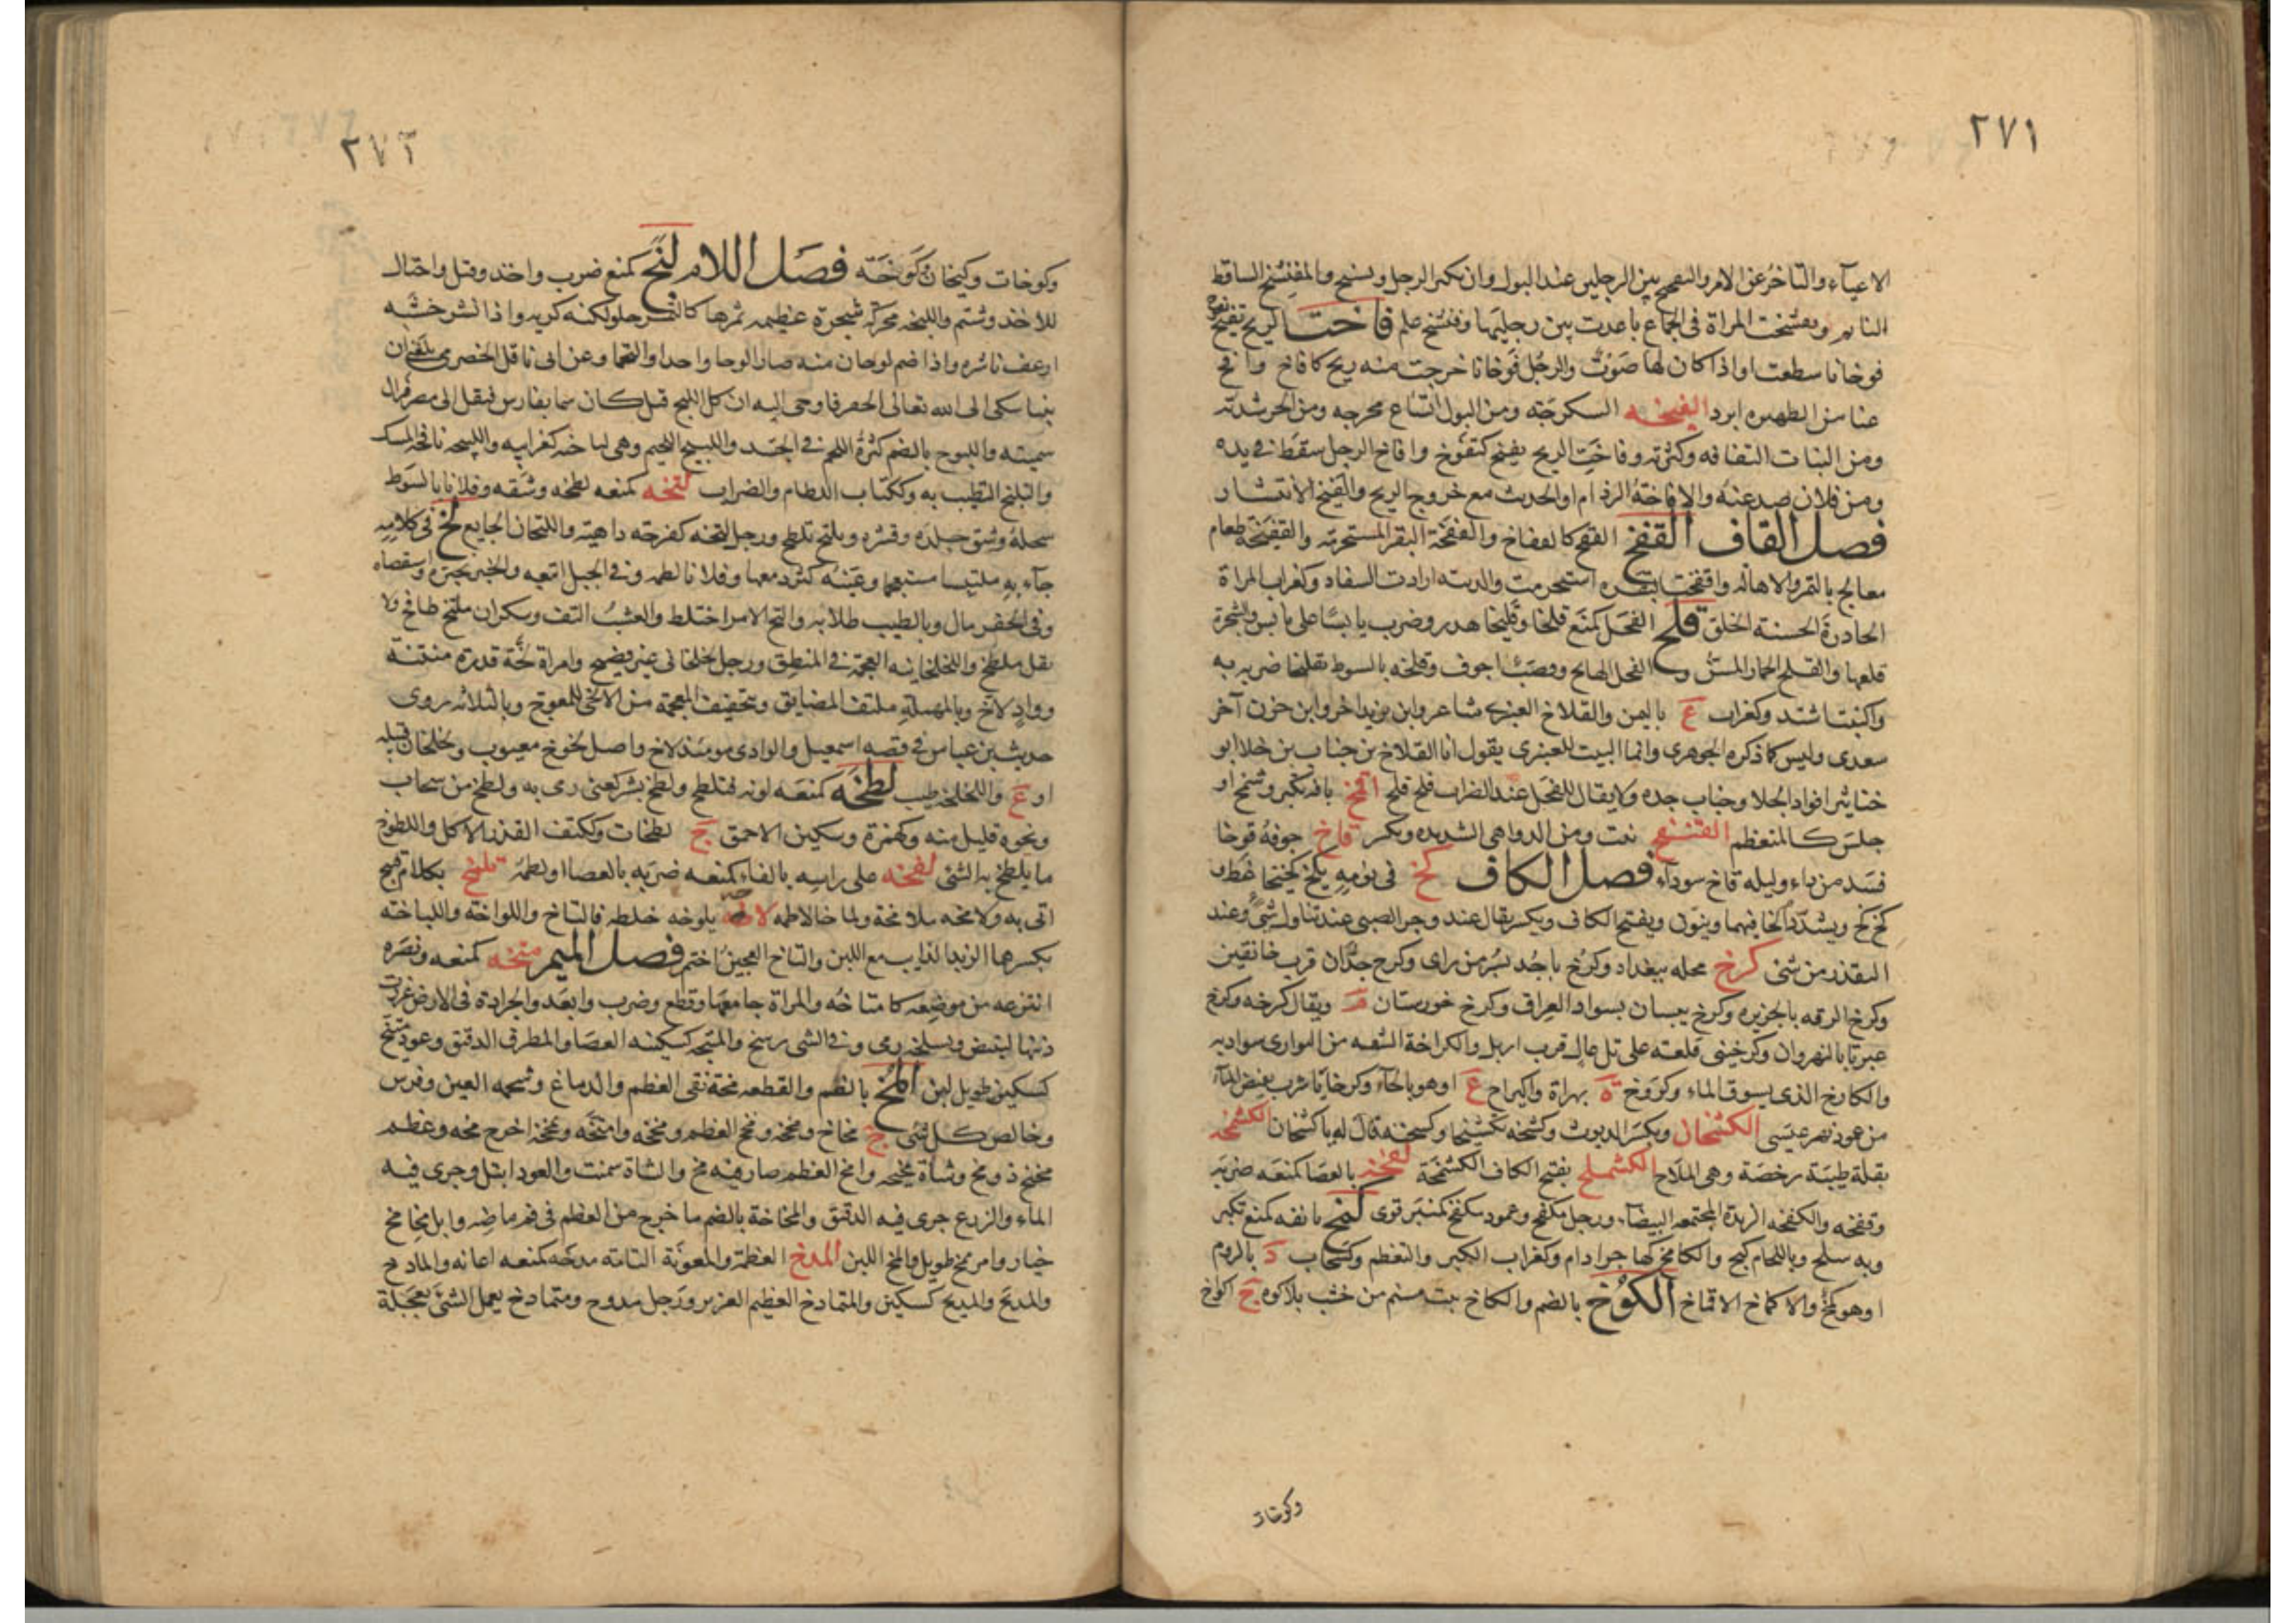 ٢٧١
الاعياء والتاخر عن الامر والتفحج بين الرجلين عند البول وان يكبر الرجل ويشيخ والمفنشخ الساقط
النايم وتفنشخت المراة في الجماع باعدت بين رجليها وفنشخ علم فاخت الريح تفيخ
فوخانا سطعت او اذا كان لها صوت والرجل فوخانا خرجت منه ريح كافاخ وافخ
عنا من الظهيره ابرد الفيخه السكرجة ومن البول اتساع مخرجه ومن الحر شدته
ومن النبات التفافه وكثرته وفاخت الريح يفيخ كتفوخ وافاخ الرجل سقط في يده
ومن فلان صد عنه والافاخة الرذام او الحدث مع خروج الريح والفيخ الانتشار
فصل القاف القفخ القفح كالقفاخ والقفخة البقر المستحرمة والقفيخة طعام
معالج بالتمر والاهاله واقفخت البقره استحرمت والذيبه ارادت السفاد وكغراب المراة
الحادرة الحسنة الخلق قلخ الفحل كمنع قلخا وقليخا هدر وضرب يابسا على يابس والشجرة
قلعها والقلخ الحمار المسن و الفحل الهايج وقصب اجوف وقلخه بالسوط تقليخا ضربه به
واكتبنا شتد وكغراب ع باليمن والقلاخ العنبري شاعر وابن يزيد اخر وابن حزن آخر
سعدي وليس كما ذكره الجوهري وانما البيت للعنبري يقول انا القلاخ بن جناب بن خلا ابو
خناثير اقواد الجلا وجناب جده ولا يقال للفحل عند الضراب قلخ قلخ اقمخ بانفه تكبر وشمخ او
جلس كالمتعظم القنفخ نعت ومن الدواهي الشديده ويكسر قاخ جوفه قوخا
فسد من داء وليله قاخ سوداء فصل الكاف كخ في نومه يكخ كخيخا غط
كخ كخ ويشدد الخا فيهما وينون ويفتح الكاف ويكسر يقال عند زجر الصبي عند تناول شي وعند
التقذر من شي كرخ محله ببغداد وكرخ باجدا بسر من راى وكرخ جدان قرب خانقين
وكرخ الرقه بالجزيره وكرخ بيسان بسواد العراق وكرخ خوزستان م ويقال كرخه وكرخ
عبرتا بالنهروان وكرخيني قلعته على تل عال قرب اربل والكراخة الشقه من البواري سواديه
والكارخ الذي يسوق الماء وكروخ ة بهراة واكيراخ ع او هو بالحاء وكرخايا شرب يفيض الماء
من عود نهر عيسى الكشخان ويكسر الديوث وكشخه تكشيخا وكشخنه قال له يا كشخان الكشخه
بقلة طيبة رخصة وهي الملاح الكشملخ بفتح الكاف الكشخة كفخه بالعصا كمنعه ضربه
وقفخه والكفخه الزبدة المجتمعه البيضاء ورجل مكفخ وعمود مكفخ كمنبر قوى كمخ بانفه كمنع تكبر
وبه سلح وباللجام كبح والكامخ كهاجر ادام وكغراب الكبر والتعظم وكسحاب د بالروم
او هو كمخ والاكماخ الاقماخ الكوخ بالضم والكاخ بيت مسنم من خشب بلا كوه ج اكواخ
وكوخات
٢٧٢
وكوخات وكيخان وكوخة فصل اللام لبخ كمنع ضرب واخذ وقتل واحتال
للاخذ وشتم واللبخه محركة شجرة عظيمه ثمرها كالتمر حلو لكنه كريه واذا نشر خشبه
ارعف ناشره واذا ضم لوحان منه صارا لوحا واحدا والتحما وعن ابي باقل الحضرمي بلغني ان
نبيا شكى الى الله تعالى الحفر فاوحى اليه ان كل اللبخ قيل كان سما بفارس فنقل الى مصر فزال
سميته واللبوخ بالضم كثرة اللحم في الجسد واللبيخ اللحيم وهي لباخيه كغرابيه واللبيخه نافجة المسك
والتلبخ التطيب به وككتاب اللطام والضراب لتخه كمنعه لطخه وشقه وفلانا بالسوط
سحله وشق جلده وقشره وتلتخ تلطخ ورجل لتخه كفرحه داهية واللتخان الجايع لخ في كلامه
جاء به ملتبسا مستعجما وعينه كثر دمعها وفلانا لطمه وفي الجبل اتبعه والخبر تخبره واستقصاه
وفي الحفر مال وبالطيب طلا به والتخ الامر اختلط والعشب التف وسكران ملتخ طافح ولا
يقل ملطخ واللخلخانيه العجمة في المنطق ورجل لخلخاني غير فصيح وامراة لخة قذرة منتنة
وواد لاخ وبالمهملة ملتف المضايق وتخفيف المعجمة من الالخى للمعوج وبالثلاثه روى
حديث بن عباس في قصه اسمعيل والوادي يومئذ لاخ واصل لخوخ معيوب ولخلخان قبيله
او ع واللخلخه طيب لطخه كمنعه لوثه فتلطخ ولطخ بشر كعني رمى به ولطخ من سحاب
ونحوه قليل منه وكهمزة وسكين الاحمق ج لطخات وككتف القذر الاكل واللطوخ
ما يلطخ به الشي لفخه على راسه بالفاء كمنعه ضربه بالعصا او لطمه تلمخ بكلام قبيح
اتى به ولامخه ملامخة ولماخا لاطمه لاخه يلوخه خلطه فالتاخ واللواخة واللياخه
بكسرها الزبد الذايب مع اللبن والتاخ العجين اختمر فصل الميم متخه كمنعه ونصره
انتزعه من موضعه كامتاخه والمراة جامعها وقطع وضرب وابعد والجرادة في الارض غرزت
ذنبها لتبيض وبسلحه رمى وفي الشي رسخ والمتيخه كسكينه العصا والمطرق الدقيق وعود متيخ
كسكين طويل لين المخ بالضم والقطعه مخة نقي العظم والدماغ وشحمه العين وفرس
وخالص كل شي ج مخاخ ومخخه ومخخ العظم ومخخه وامتخه ومخمخه اخرج مخه وعظم
مخيخ ذو مخ وشاة مخيخه وامخ العظم صار فيه مخ والشاة سمنت والعود ابتل وجرى فيه
الماء والزرع جرى فيه الدقيق والمخاخة بالضم ما خرج من العظم في فم ماصه وابل مخايخ
خيار وامر مخ طويل والمخ اللين المدخ العظمة والمعونة التامة مدخه كمنعه اعانه والمادخ
والمديخ والمديخ كسكين والمتمادخ العظيم العزيز ورجل مدوخ ومتمادخ يعمل الشي بعجلة